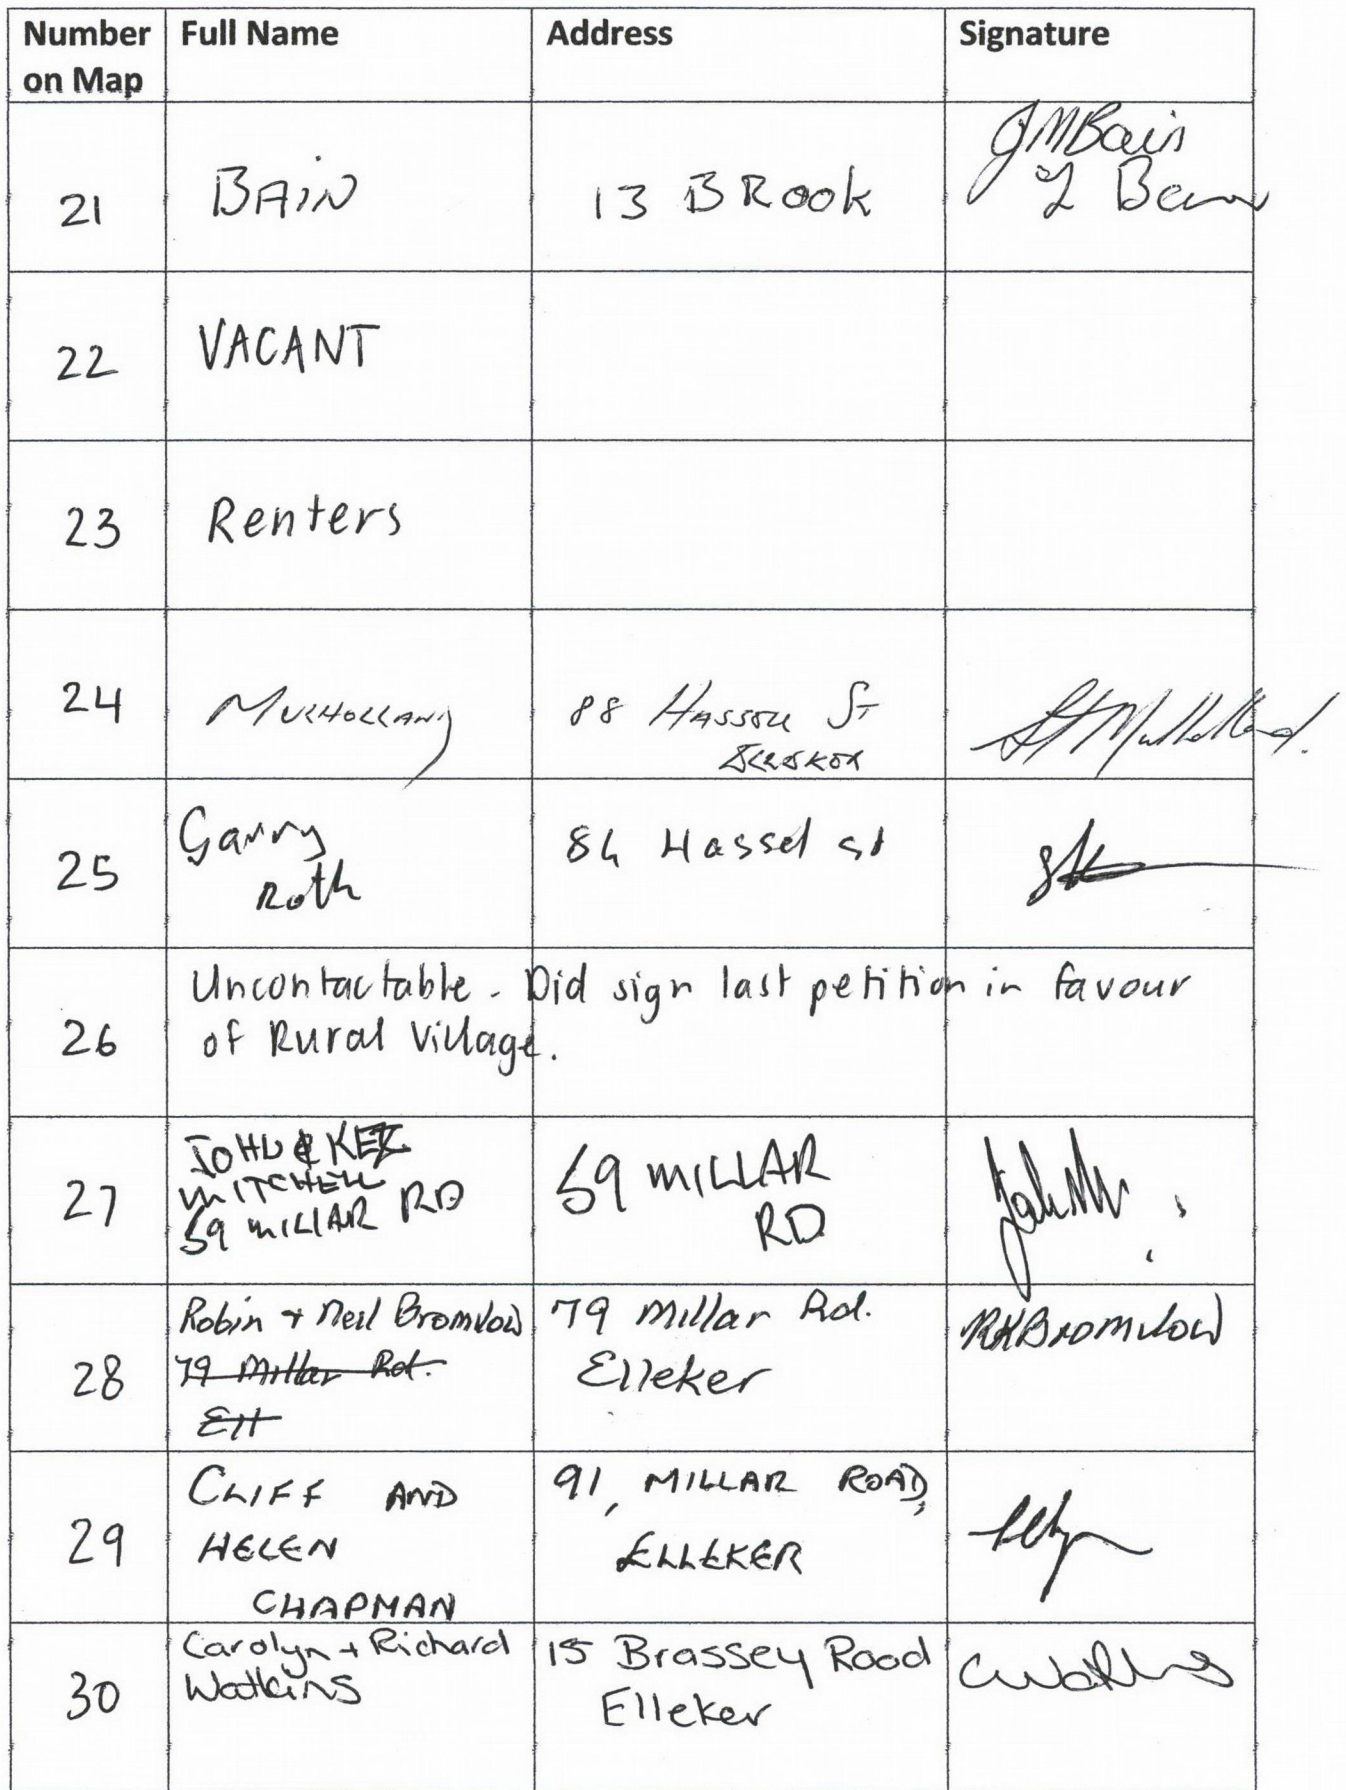 Number on Map Full Name Address Signature
21 BAIN 13 BROOK JMBain
L Bain
22 VACANT
23 Renters
24 MULHOLLAND 88 HASSELL ST
ELLEKER
25 Garry Roth 84 Hassel st
26 Uncontactable - Did sign last petition in favour
of Rural Village.
27 JOHN & KEZ
MITCHELL
59 MILLAR RD
59 MILLAR
RD
28 Robin + Neil Bromilow
79 Millar Rd.
Ell
79 Millar Rd.
Elleker
RKBromilow
29 CLIFF AND
HELEN
CHAPMAN
91, MILLAR ROAD,
ELLEKER
30 Carolyn + Richard
Watkins
15 Brassey Road
Elleker
CWatkins